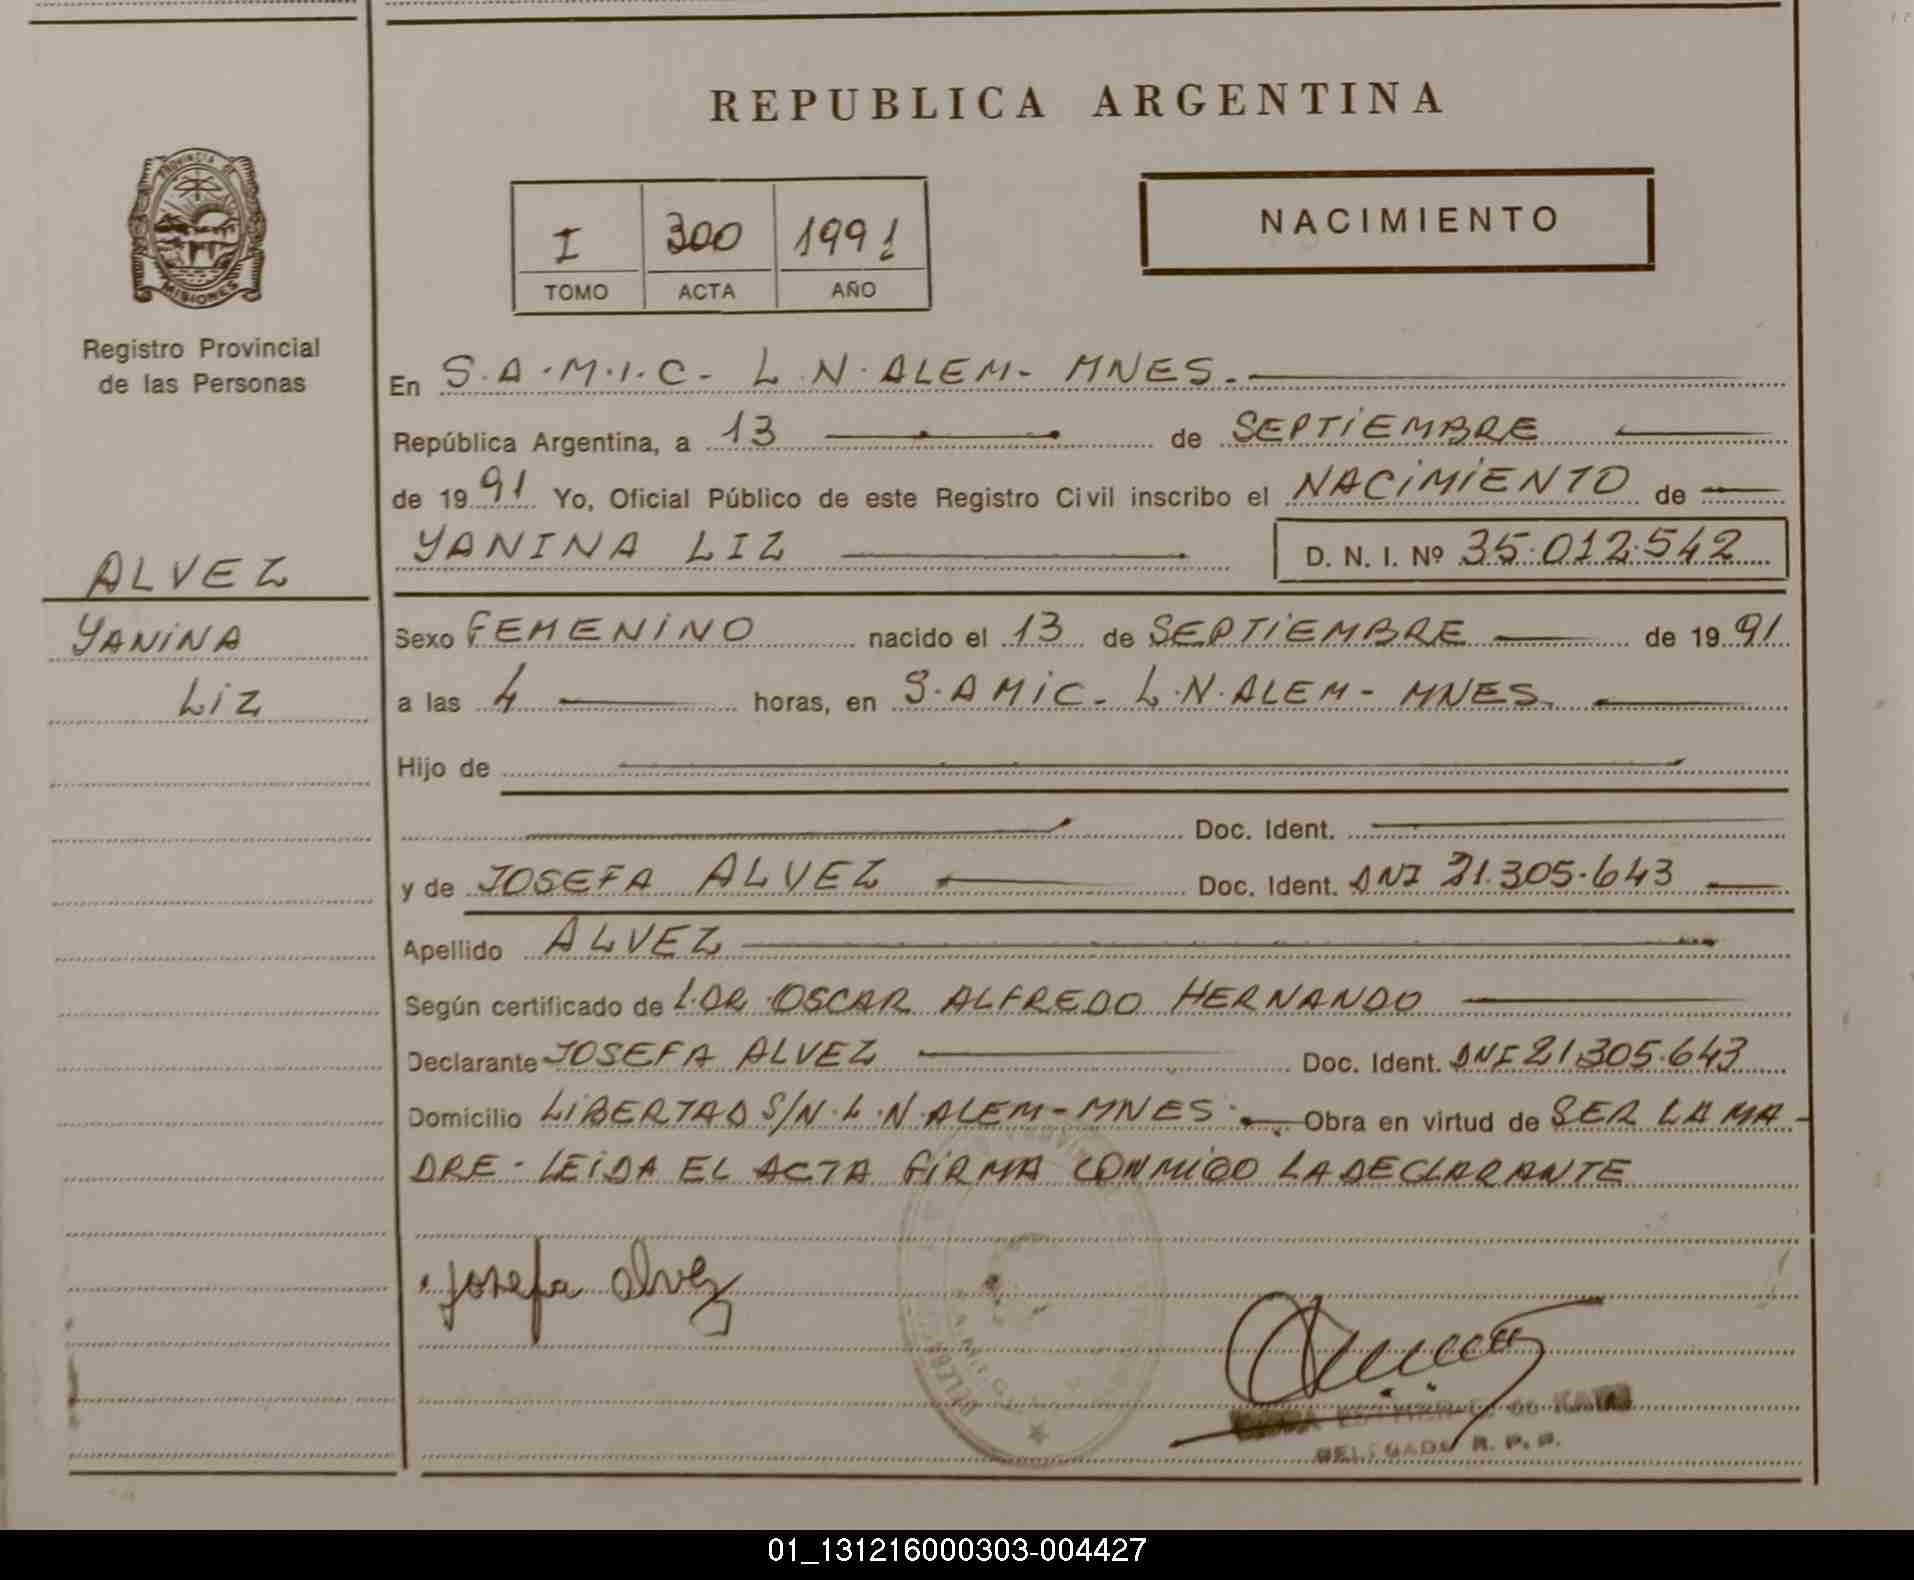 REPUBLICA ARGENTINA
PROVINCIA DE
MISIONES
Registro Provincial
de las Personas
I 300 1991
TOMO ACTA AÑO
NACIMIENTO
En S.A.M.I.C- L.N. ALEM- MNES.
República Argentina, a 13 de SEPTIEMBRE
de 1991 Yo, Oficial Público de este Registro Civil inscribo el NACIMIENTO de
YANINA LIZ D. N. I. Nº 35.012.542
ALVEZ
YANINA
LIZ
Sexo FEMENINO nacido el 13 de SEPTIEMBRE de 1991
a las 4 horas, en S.AMIC- L.N. ALEM- MNES.
Hijo de
Doc. Ident.
y de JOSEFA ALVEZ Doc. Ident. DNI 21.305.643
Apellido ALVEZ
Según certificado de OSCAR ALFREDO HERNANDO
Declarante JOSEFA ALVEZ Doc. Ident. DNI 21.305.643
Domicilio LIBERTAD S/N. L.N. ALEM-MNES. Obra en virtud de SER LA MA-
DRE- LEIDA EL ACTA FIRMA CONMIGO LA DECLARANTE
Josefa Alvez
DELEGADO R. P. P.
01_131216000303-004427